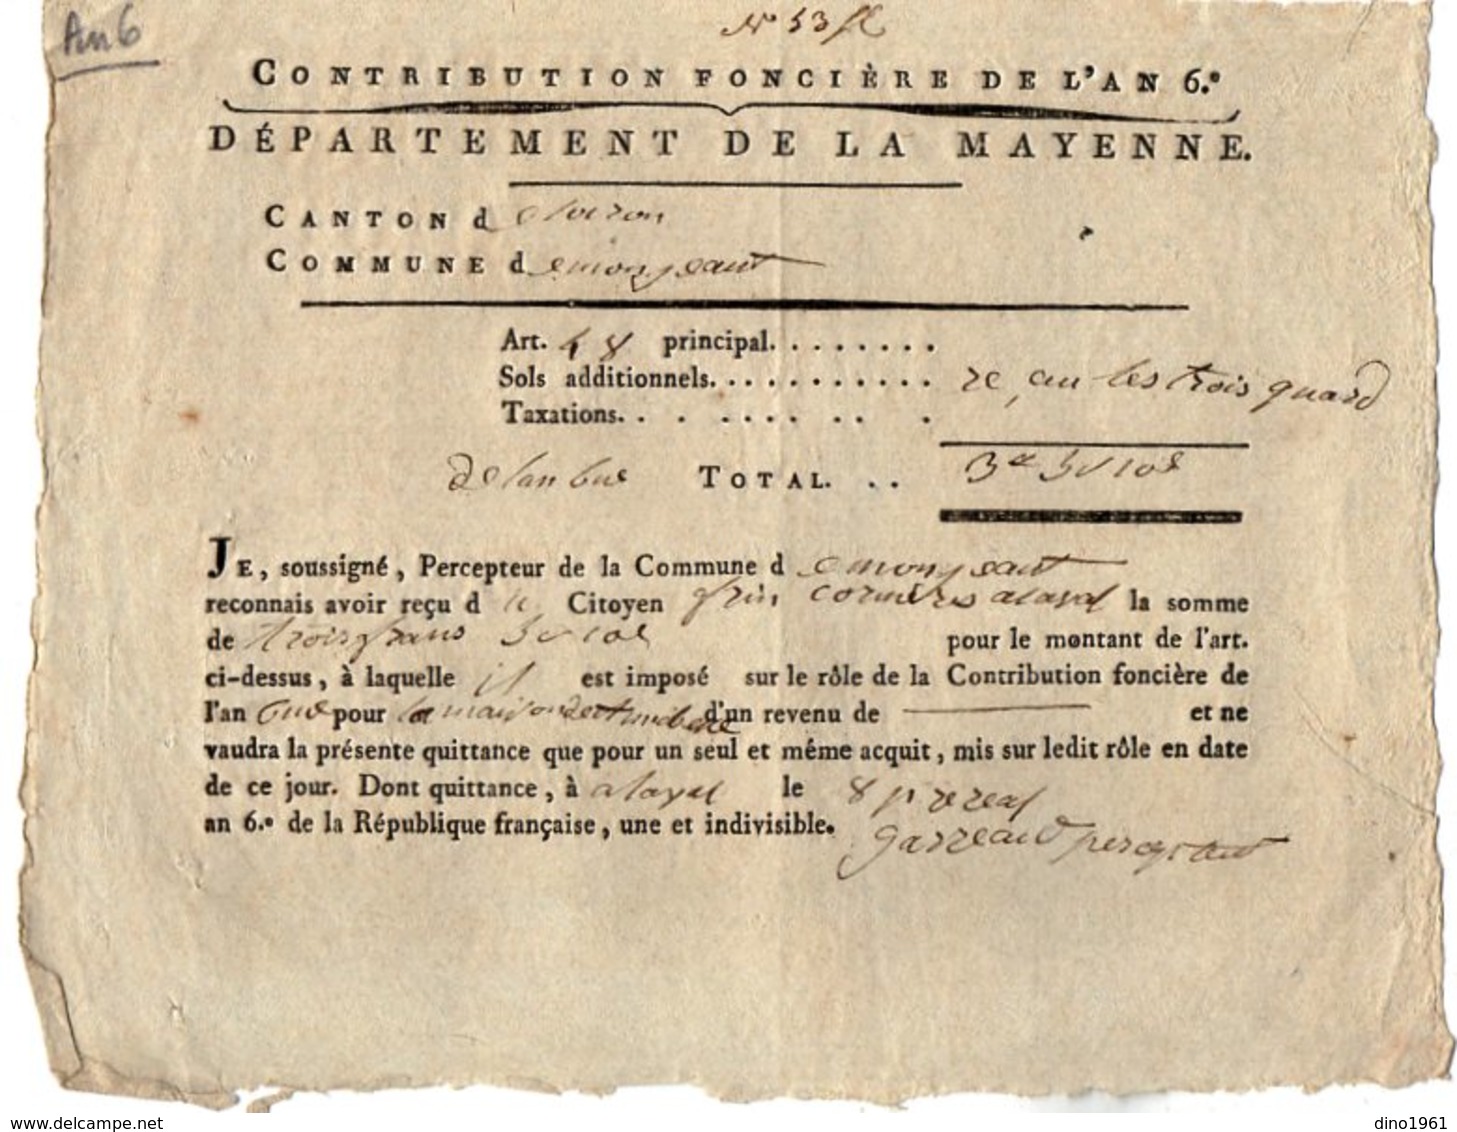 An 6
N° 53
CONTRIBUTION FONCIÈRE DE L'AN 6.e
DÉPARTEMENT DE LA MAYENNE.
CANTON de loiron
COMMUNE de monjeant
Art. 48 principal. . . . . . . .
Sols additionnels. . . . . . . . . . . les trois quard
Taxations. . . . . . . . . . .
de lan TOTAL. . . 3
JE, soussigné, Percepteur de la Commune de monjeant
reconnais avoir reçu d u Citoyen frin cormeres a laval la somme
de trois frans pour le montant de l'art.
ci-dessus, à laquelle il est imposé sur le rôle de la Contribution foncière de
l'an pour la maison d'un revenu de et ne
vaudra la présente quittance que pour un seul et même acquit, mis sur ledit rôle en date
de ce jour. Dont quittance, à a laval le 8 prereal
an 6.e de la République française, une et indivisible.
garreau
www.delcampe.net
dino1961